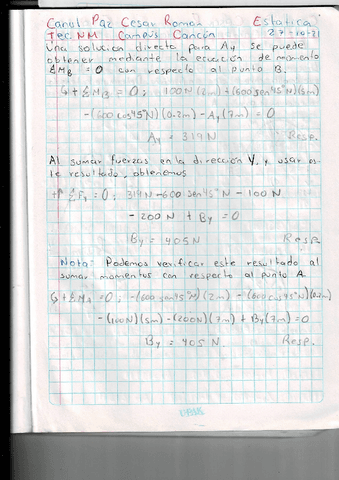 Canul Paz Cesar Román Estatica
Tec.NM Campus Cancún 27-10-21
Una solución directa para Ay se puede
obtener mediante la ecuación de momento
ΣMB = 0 con respecto al punto B.
↺+ΣMB = 0; 100N(2m)+(600 sen45°N)(5m)
-(600 cos45°N)(0.2m)-Ay(7m) = 0
Ay = 319N Resp.
Al sumar fuerzas en la dirección Y, y usar es-
te resultado, obtenemos
+↑ΣFy = 0; 319N-600 sen45°N - 100N
- 200N + By = 0
By = 405N Resp.
Nota: Podemos verificar este resultado al
sumar momentos con respecto al punto A.
↺+ΣMA = 0; -(600 sen45°N)(2m) - (600 cos45°N)(0.2m)
-(100N)(5m)-(200N)(7m)+By(7m)=0
By = 405 N. Resp.